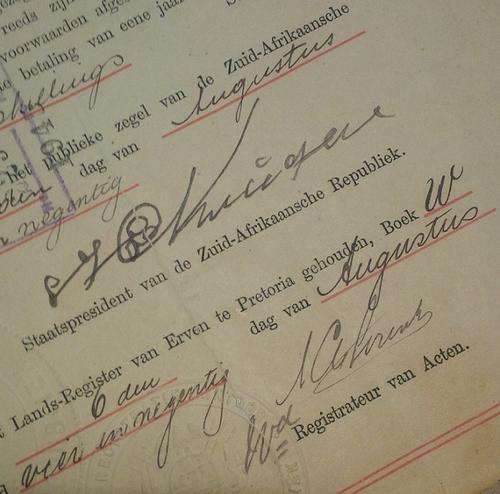 reeds zijn
voorwaarden afges
betaling van eene jaar
Shelling
het publieke zegel van de Zuid-Afrikaansche
dag van Augustus
negentig
Staatspresident van de Zuid-Afrikaansche Republiek.
Lands-Register van Erven te Pretoria gehouden, Boek W
6 den dag van Augustus
vier en negentig
Registrateur van Acten.